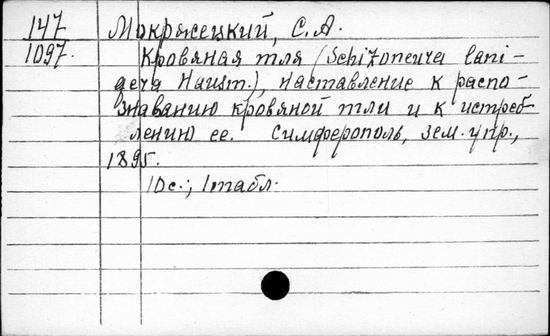 147
1097.
Мокржецкий, С.А.
Кровяная тля (Schizoneura lani-
gera Hausm.), наставление к распо-
знаванию кровяной тли и к истреб-
лению ее. Симферополь, зем. упр.,
1895.
10с.; 1табл.